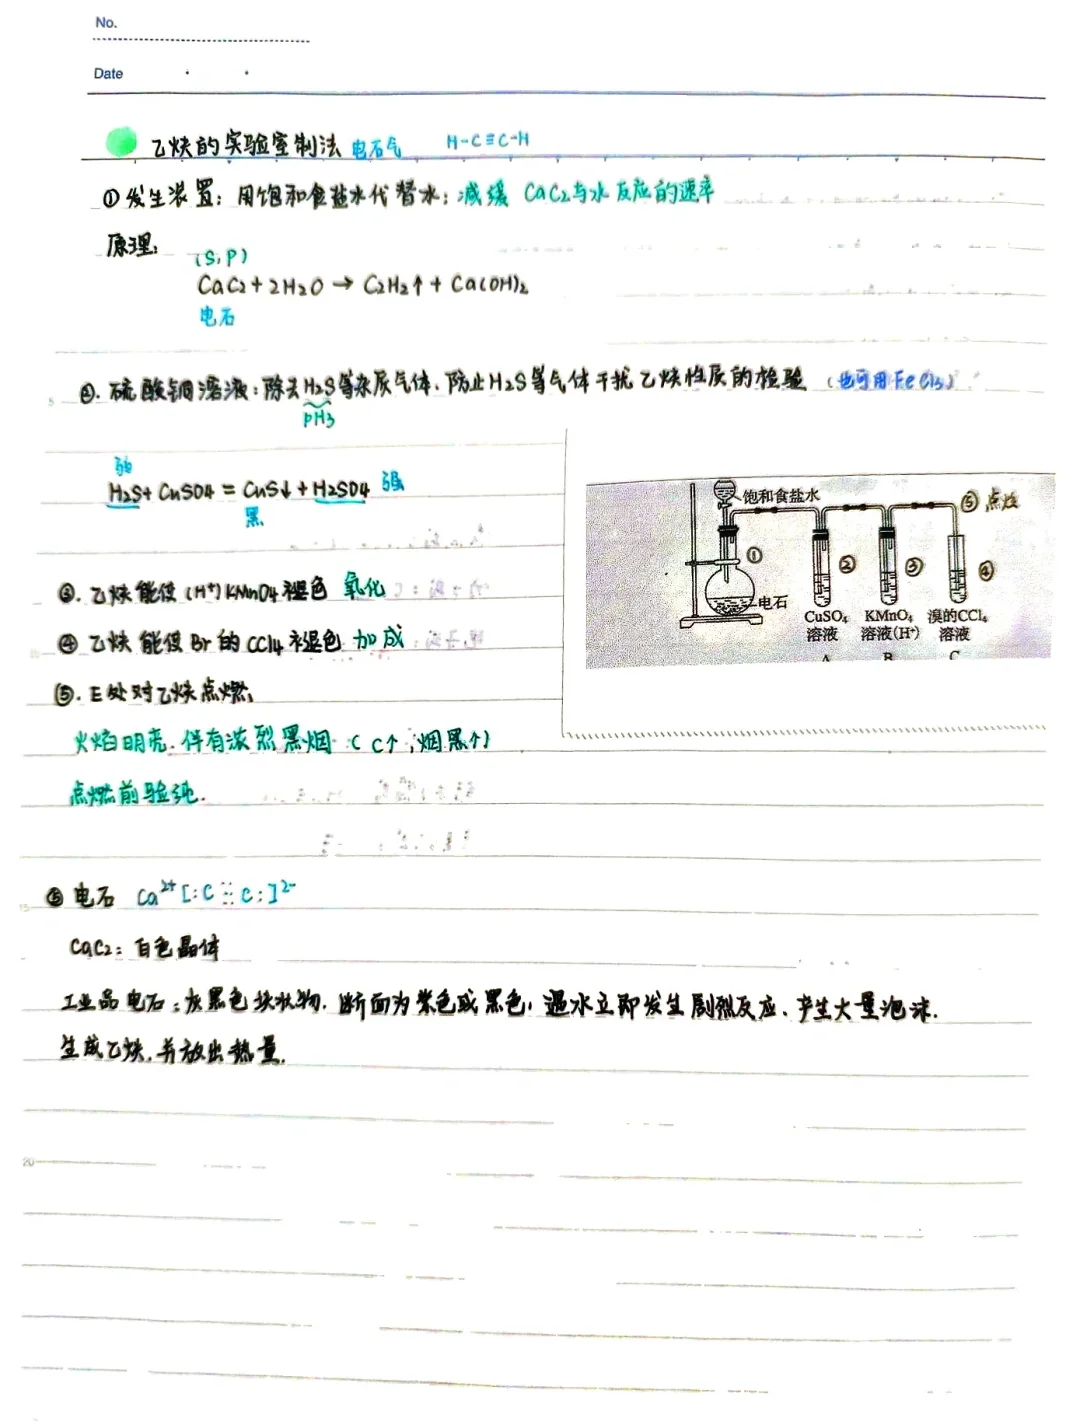 No.
Date
乙炔的实验室制法 电石气 H-C≡C-H
①发生装置：用饱和食盐水代替水：减缓 CaC2与水反应的速率
原理：
(S, P)
CaC2+2H2O → C2H2↑+Ca(OH)2
电石
②. 硫酸铜溶液：除去H2S等杂质气体，防止H2S等气体干扰乙炔性质的检验 (也可用FeCl3)
PH3
弱
H2S+CuSO4=CuS↓+H2SO4 强
黑
饱和食盐水
⑤ 点燃
①
②
③
④
电石
CuSO4 溶液
KMnO4 溶液(H+)
溴的CCl4 溶液
A B C
③. 乙炔能使(H+)KMnO4褪色 氧化
④ 乙炔能使Br的CCl4褪色 加成
⑤. E处对乙炔点燃,
火焰明亮，伴有浓烈黑烟 (C↑, 烟黑↑)
点燃前验纯.
⑥ 电石 Ca2+[:C⫶⫶C:]2-
CaC2：白色晶体
工业品电石：灰黑色块状物，断面为紫色或黑色，遇水立即发生剧烈反应、产生大量泡沫.
生成乙炔，并放出热量.
20